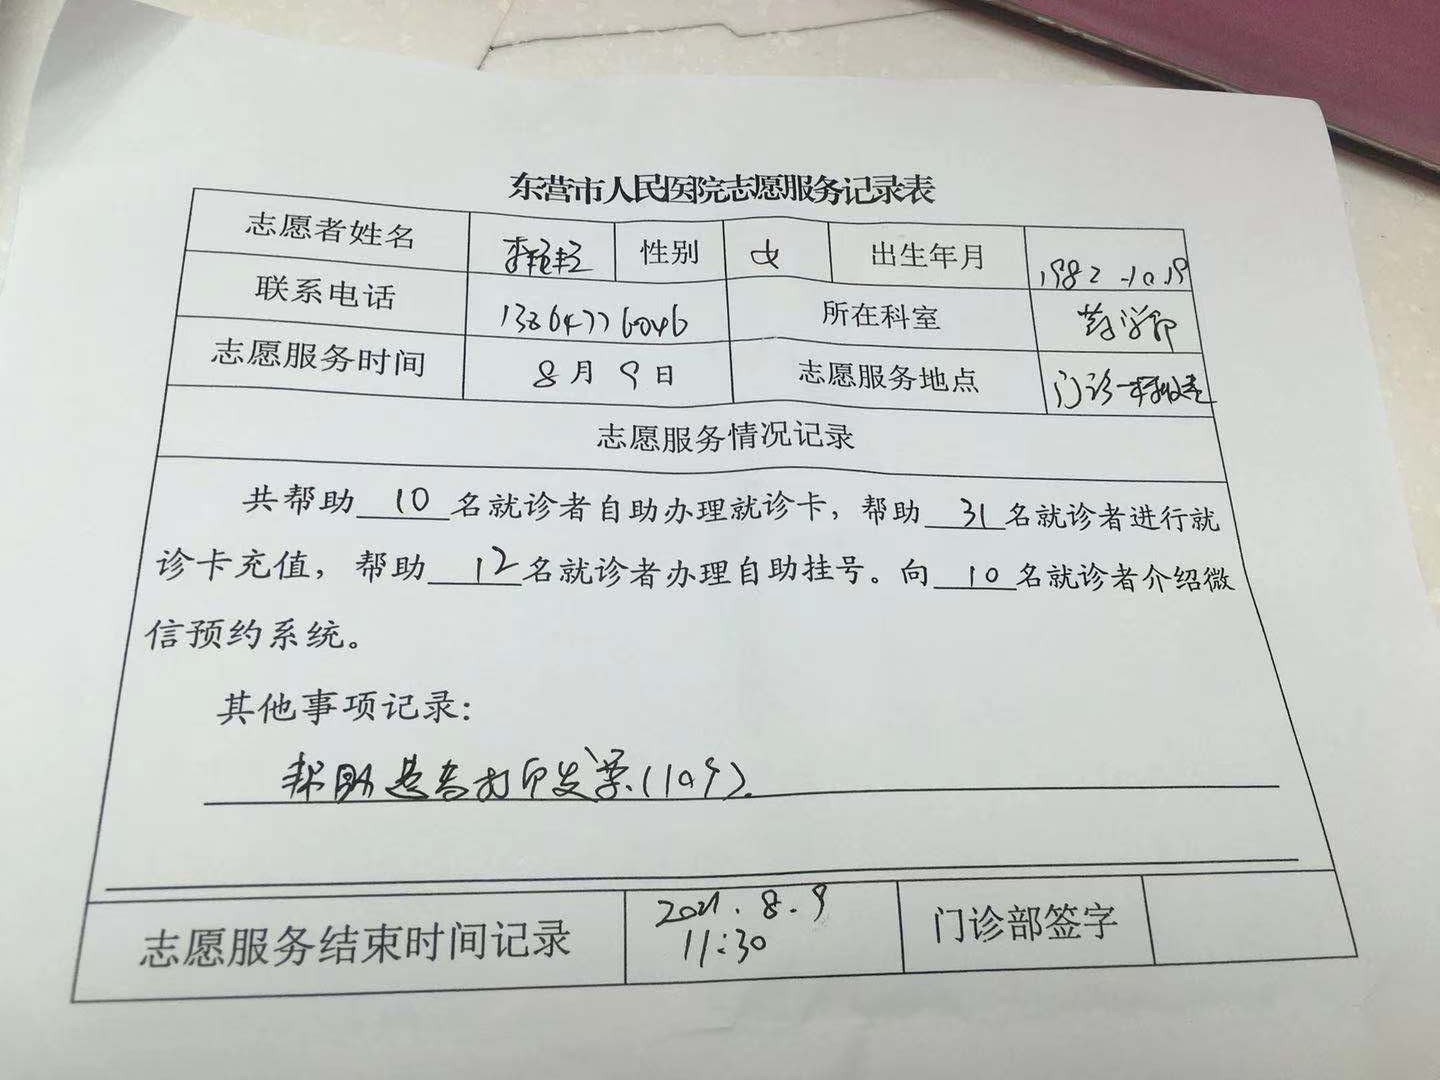 东营市人民医院志愿服务记录表
志愿者姓名 性别 女 出生年月 1982.10.19
联系电话 13864776046 所在科室 药学部
志愿服务时间 8月9日 志愿服务地点 门诊一楼
志愿服务情况记录
共帮助 10 名就诊者自助办理就诊卡，帮助 31 名就诊者进行就
诊卡充值，帮助 12 名就诊者办理自助挂号。向 10 名就诊者介绍微
信预约系统。
其他事项记录：
帮助患者打印发票(10个)
志愿服务结束时间记录 2021.8.9 门诊部签字
11:30